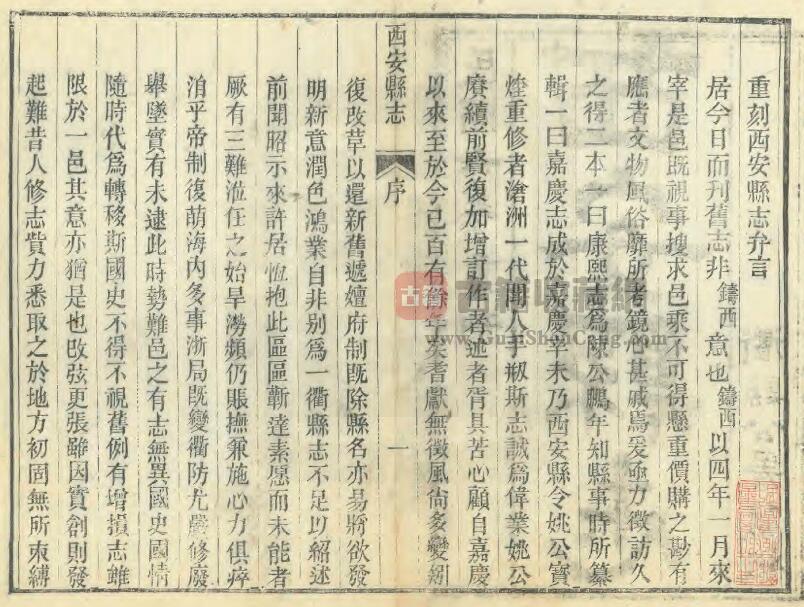 重刻西安縣志弁言
居今日而刊舊志非鑄西意也鑄西以四年一月來
宰是邑旣視事搜求邑乘不可得懸重價購之尠有
應者文物風俗靡所考鏡心甚戚焉爰亟力徵訪久
之得二本一曰康熙志爲陳公鵬年知縣事時所纂
輯一曰嘉慶志成於嘉慶辛未乃西安縣令姚公寶
煃重修者滄洲一代聞人手剏斯志誠爲偉業姚公
賡續前賢復加增訂作者述者胥具苦心顧自嘉慶
以來至於今已百有餘年矣耆獻無徵風尙多變矧
西安縣志
序
一
復改革以還新舊遞嬗府制旣除縣名亦易將欲發
明新意潤色鴻業自非別爲一衢縣志不足以紹述
前聞昭示來許居恆抱此區區蘄達素愿而未能者
厥有三難涖任之始旱澇頻仍賑撫兼施心力俱瘁
洎乎帝制復萌海內多事浙局旣變衢防尤嚴修廢
舉墜實有未逮此時勢難邑之有志無異國史國情
隨時代爲轉移斯國史不得不視舊例有增損志雖
限於一邑其意亦猶是也改弦更張雖因實創則發
起難昔人修志貲力悉取之於地方初固無所束縛
古籍